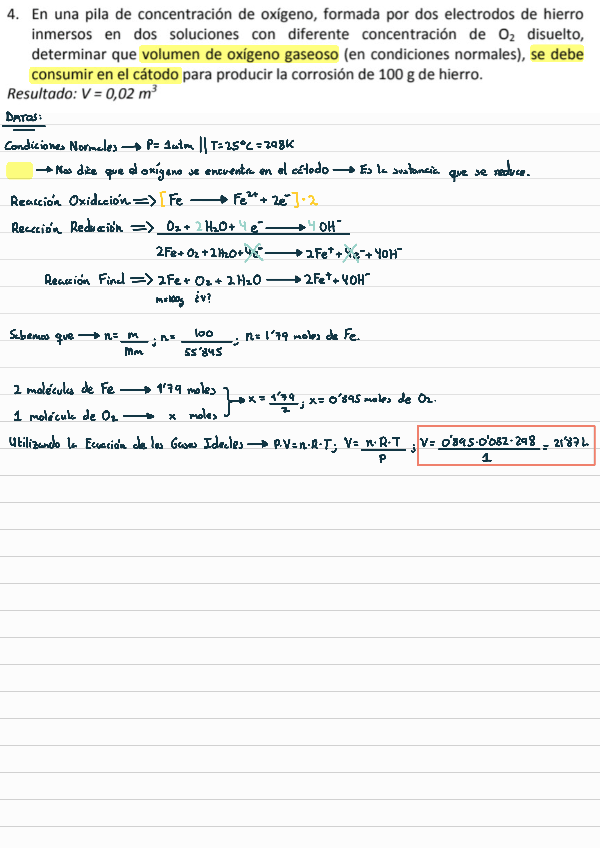 4. En una pila de concentración de oxígeno, formada por dos electrodos de hierro
inmersos en dos soluciones con diferente concentración de O₂ disuelto,
determinar que volumen de oxígeno gaseoso (en condiciones normales), se debe
consumir en el cátodo para producir la corrosión de 100 g de hierro.
Resultado: V = 0,02 m³
DATOS:
Condiciones Normales → P=1atm || T=25ºC=298K
→ Nos dice que el oxígeno se encuentra en el cátodo → Es la sustancia que se reduce.
Reacción Oxidación => [Fe → Fe²⁺ + 2e⁻]·2
Reacción Reducción => O₂ + 2H₂O + 4e⁻ → 4OH⁻
2Fe + O₂ + 2H₂O + 4e⁻ → 2Fe⁺ + 4e⁻ + 4OH⁻
Reacción Final => 2Fe + O₂ + 2H₂O → 2Fe⁺ + 4OH⁻
m=100g ¿V?
Sabemos que → n= m/Mm ; n= 100/55'845 ; n= 1'79 moles de Fe.
2 moléculas de Fe → 1'79 moles
1 molécula de O₂ → x moles } → x = 1'79/2 ; x= 0'895 moles de O₂.
Utilizando la Ecuación de los Gases Ideales → P.V=n.R.T; V= n.R.T/P ; V= 0'895.0'082.298/1 = 21'87L